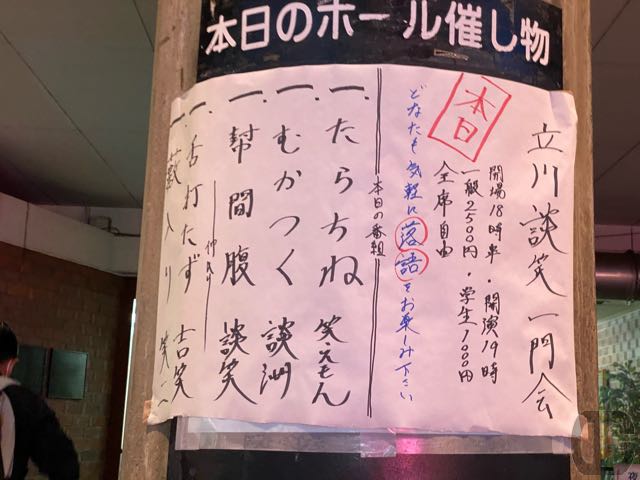 本日のホール催し物
立川談笑一門会
本日
開場18時半・開演19時
一般2500円・学生1000円
全席自由
どなたも気軽に落語をお楽しみ下さい
本日の番組
一、たらちね 笑えもん
一、むかつく 談洲
一、幇間腹 談笑
仲入り
一、舌打たず 吉笑
一、薮入り 笑二